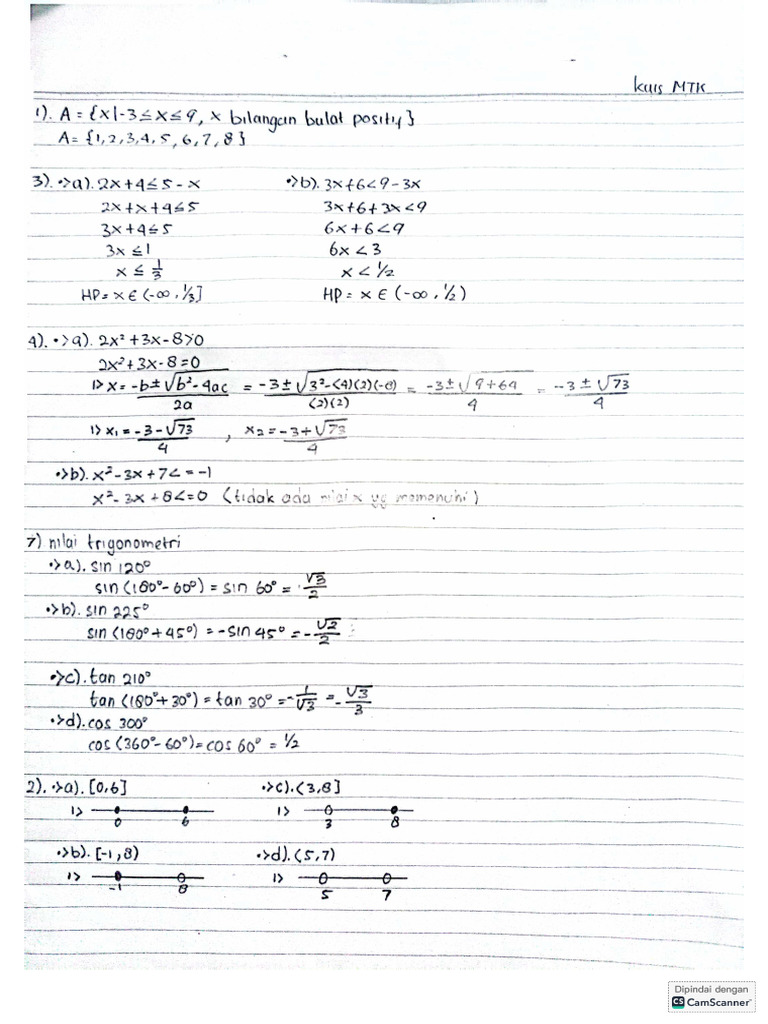 kuis MTK
1). A = {x|-3 ≤ x ≤ 9, x bilangan bulat positif}
A = {1,2,3,4,5,6,7,8}
3). •> a). 2x+4 ≤ 5 - x
2x+x+4 ≤ 5
3x+4 ≤ 5
3x ≤ 1
x ≤ 1/3
HP = x ∈ (-∞, 1/3]
•> b). 3x+6 < 9 - 3x
3x+6+3x < 9
6x+6 < 9
6x < 3
x < 1/2
HP = x ∈ (-∞, 1/2)
4). •> a). 2x² + 3x - 8 > 0
2x² + 3x - 8 = 0
1> x = -b ± √b² - 4ac / 2a = -3 ± √3² - (4)(2)(-8) / (2)(2) = -3 ± √9 + 64 / 4 = -3 ± √73 / 4
1> x₁ = -3 - √73 / 4 , x₂ = -3 + √73 / 4
•> b). x² - 3x + 7 < = -1
x² - 3x + 8 < = 0 (tidak ada nilai x yg memenuhi)
7) nilai trigonometri
•> a). sin 120°
sin (180° - 60°) = sin 60° = √3/2
•> b). sin 225°
sin (180° + 45°) = -sin 45° = -√2/2
•> c). tan 210°
tan (180° + 30°) = tan 30° = -1/√3 = -√3/3
•> d). cos 300°
cos (360° - 60°) = cos 60° = 1/2
2). •> a). [0,6]
1> 0 6
•> c). (3,8]
1> 3 8
•> b). [-1,8)
1> -1 8
•> d). (5,7)
1> 5 7
Dipindai dengan
CS CamScanner